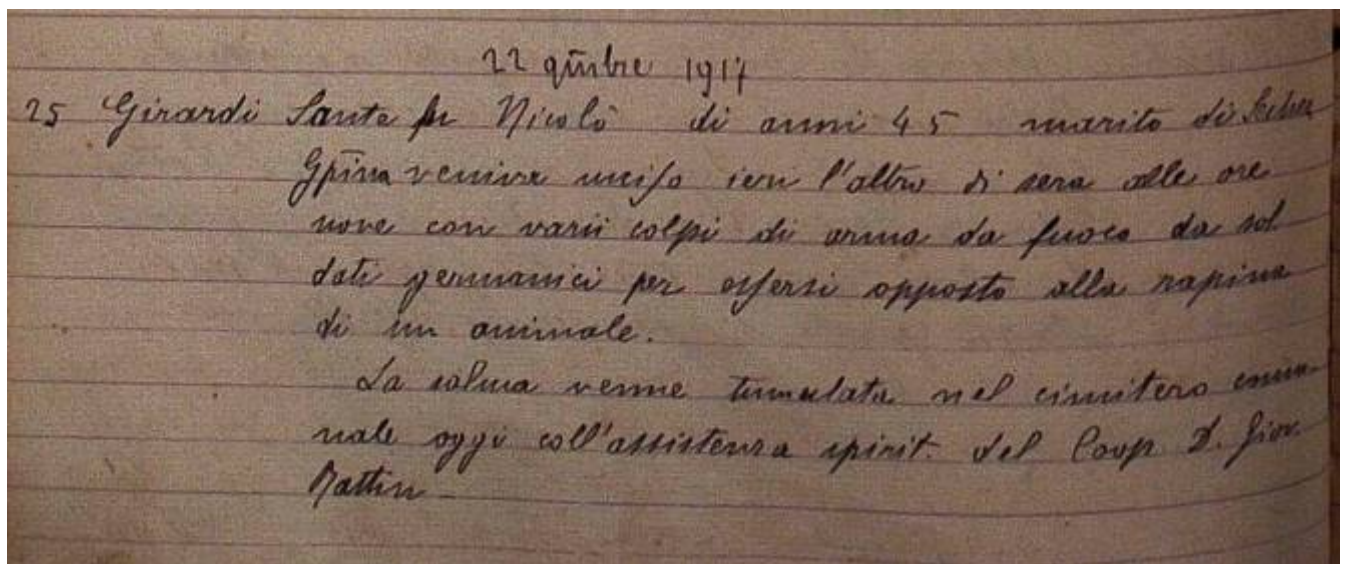 22 9mbre 1917
25 Girardi Sante fu Nicolò di anni 45 marito di
Gpina venine ucciso ieri l'altro di sera alle ore
nove con varii colpi di arma da fuoco da sol
dati germanici per essersi opposto alla rapina
di un animale.
La salma venne tumulata nel cimitero comu-
nale oggi coll'assistenza spirit. del Coop D. Giov.